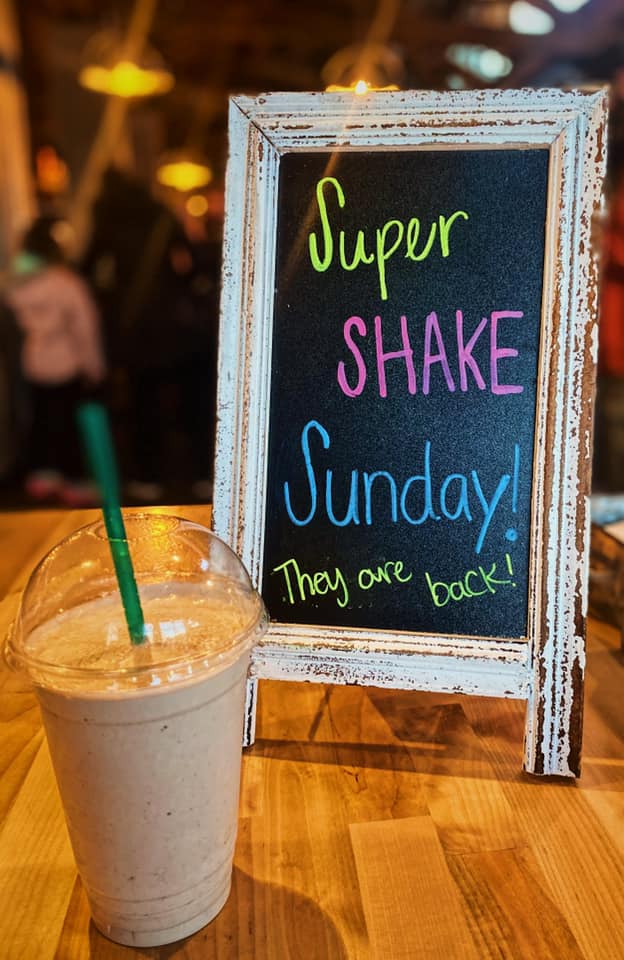 Super
SHAKE
Sunday!
They are back!